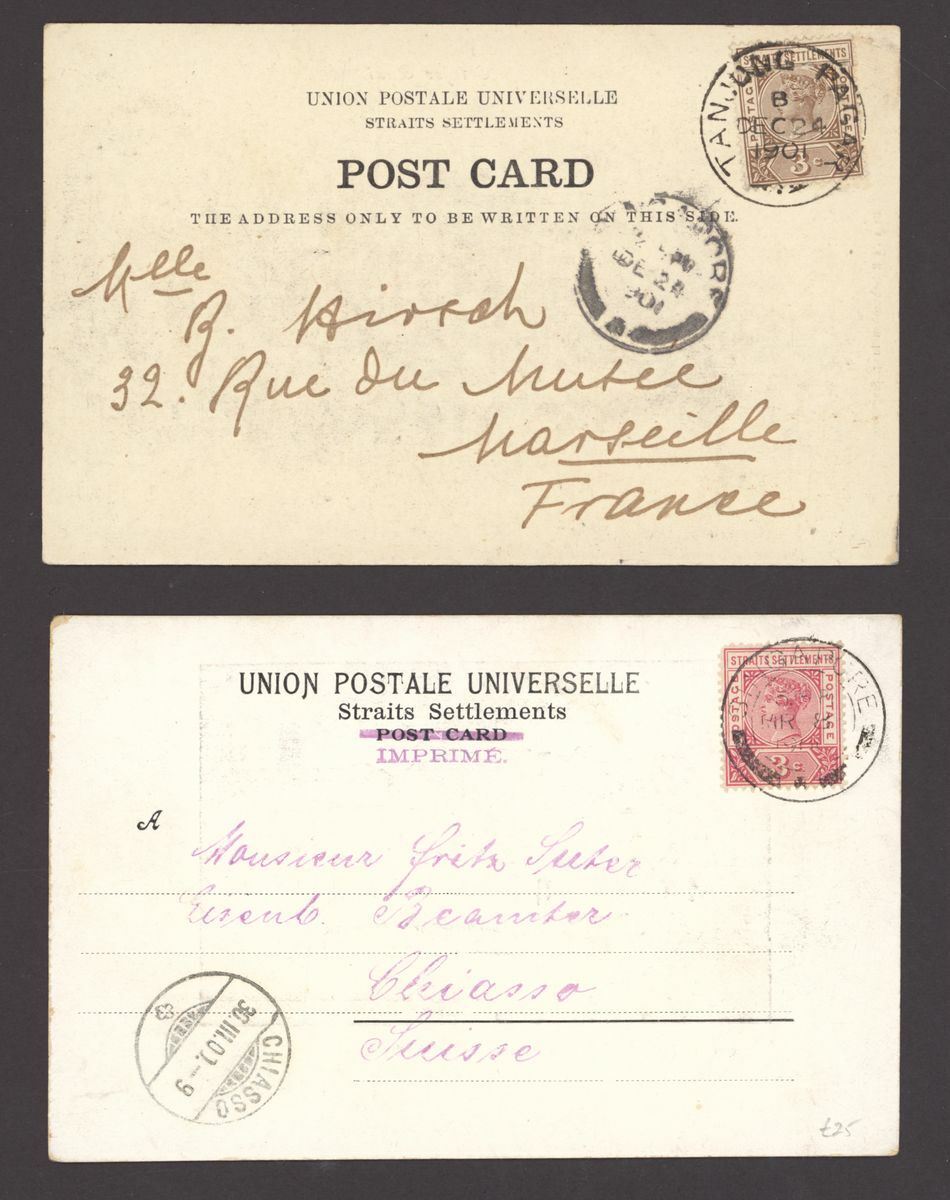 UNION POSTALE UNIVERSELLE
STRAITS SETTLEMENTS
POST CARD
THE ADDRESS ONLY TO BE WRITTEN ON THIS SIDE.
STRAITS SETTLEMENTS
POSTAGE POSTAGE
3 c
TANJONG PAGAR
B
DEC 24
1901
DE 24
901
Mlle
R. Hirsch
32. Rue du Musée
Marseille
France
UNION POSTALE UNIVERSELLE
Straits Settlements
POST CARD
IMPRIMÉ.
STRAITS SETTLEMENTS
POSTAGE POSTAGE
3 c
SINGAPORE
MR 8
A
Monsieur Fritz
Eisenb. Beamter
Chiasso
Suisse
30.III.01.-9
CHIASSO
£25